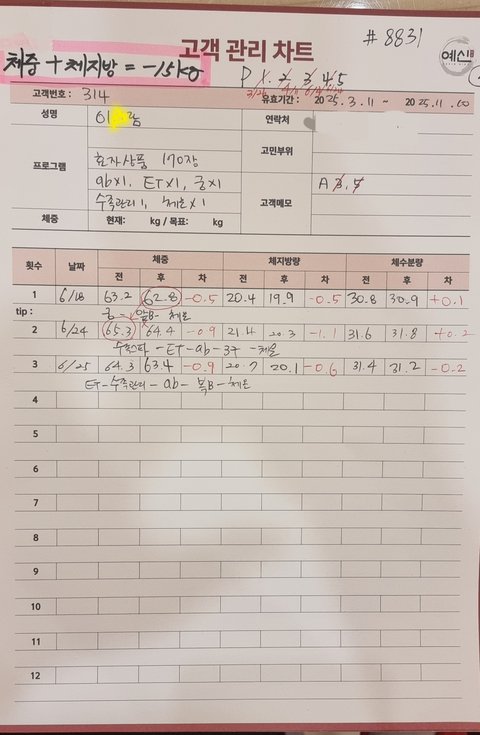 #8831
고객 관리 차트
예신
체중 + 체지방 = -15kg
P X. 2 3 4 5
고객번호 : 314
유효기간 : 2025. 3. 11 ~ 2025. 11.
성명
연락처
프로그램
효자상품 170장
고민부위
ab×1, ET×1, 궁×1
수족관리 1, 체온×1
고객메모
A 3, 4
체중 현재: kg / 목표: kg
횟수 날짜 체중 체지방량 체수분량
전 후 차 전 후 차 전 후 차
1 6/18 63.2 62.8 -0.5 20.4 19.9 -0.5 30.8 30.9 +0.1
tip : 궁 - 앞B - 체온
2 6/24 65.3 64.4 -0.9 21.4 20.3 -1.1 31.6 31.8 +0.2
- ET - ab - 궁 - 체온
3 6/25 64.3 63.4 -0.9 20.7 20.1 -0.6 31.4 31.2 -0.2
ET - 수족관리 - ab - 복B - 체온
4
5
6
7
8
9
10
11
12